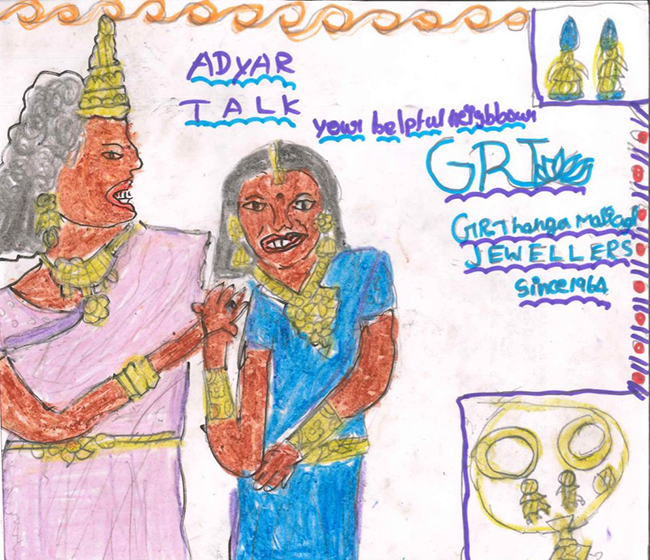 ADYAR
TALK
your helpful neighbour
GRJ
GRThanga Maligai
JEWELLERS
Since 1964